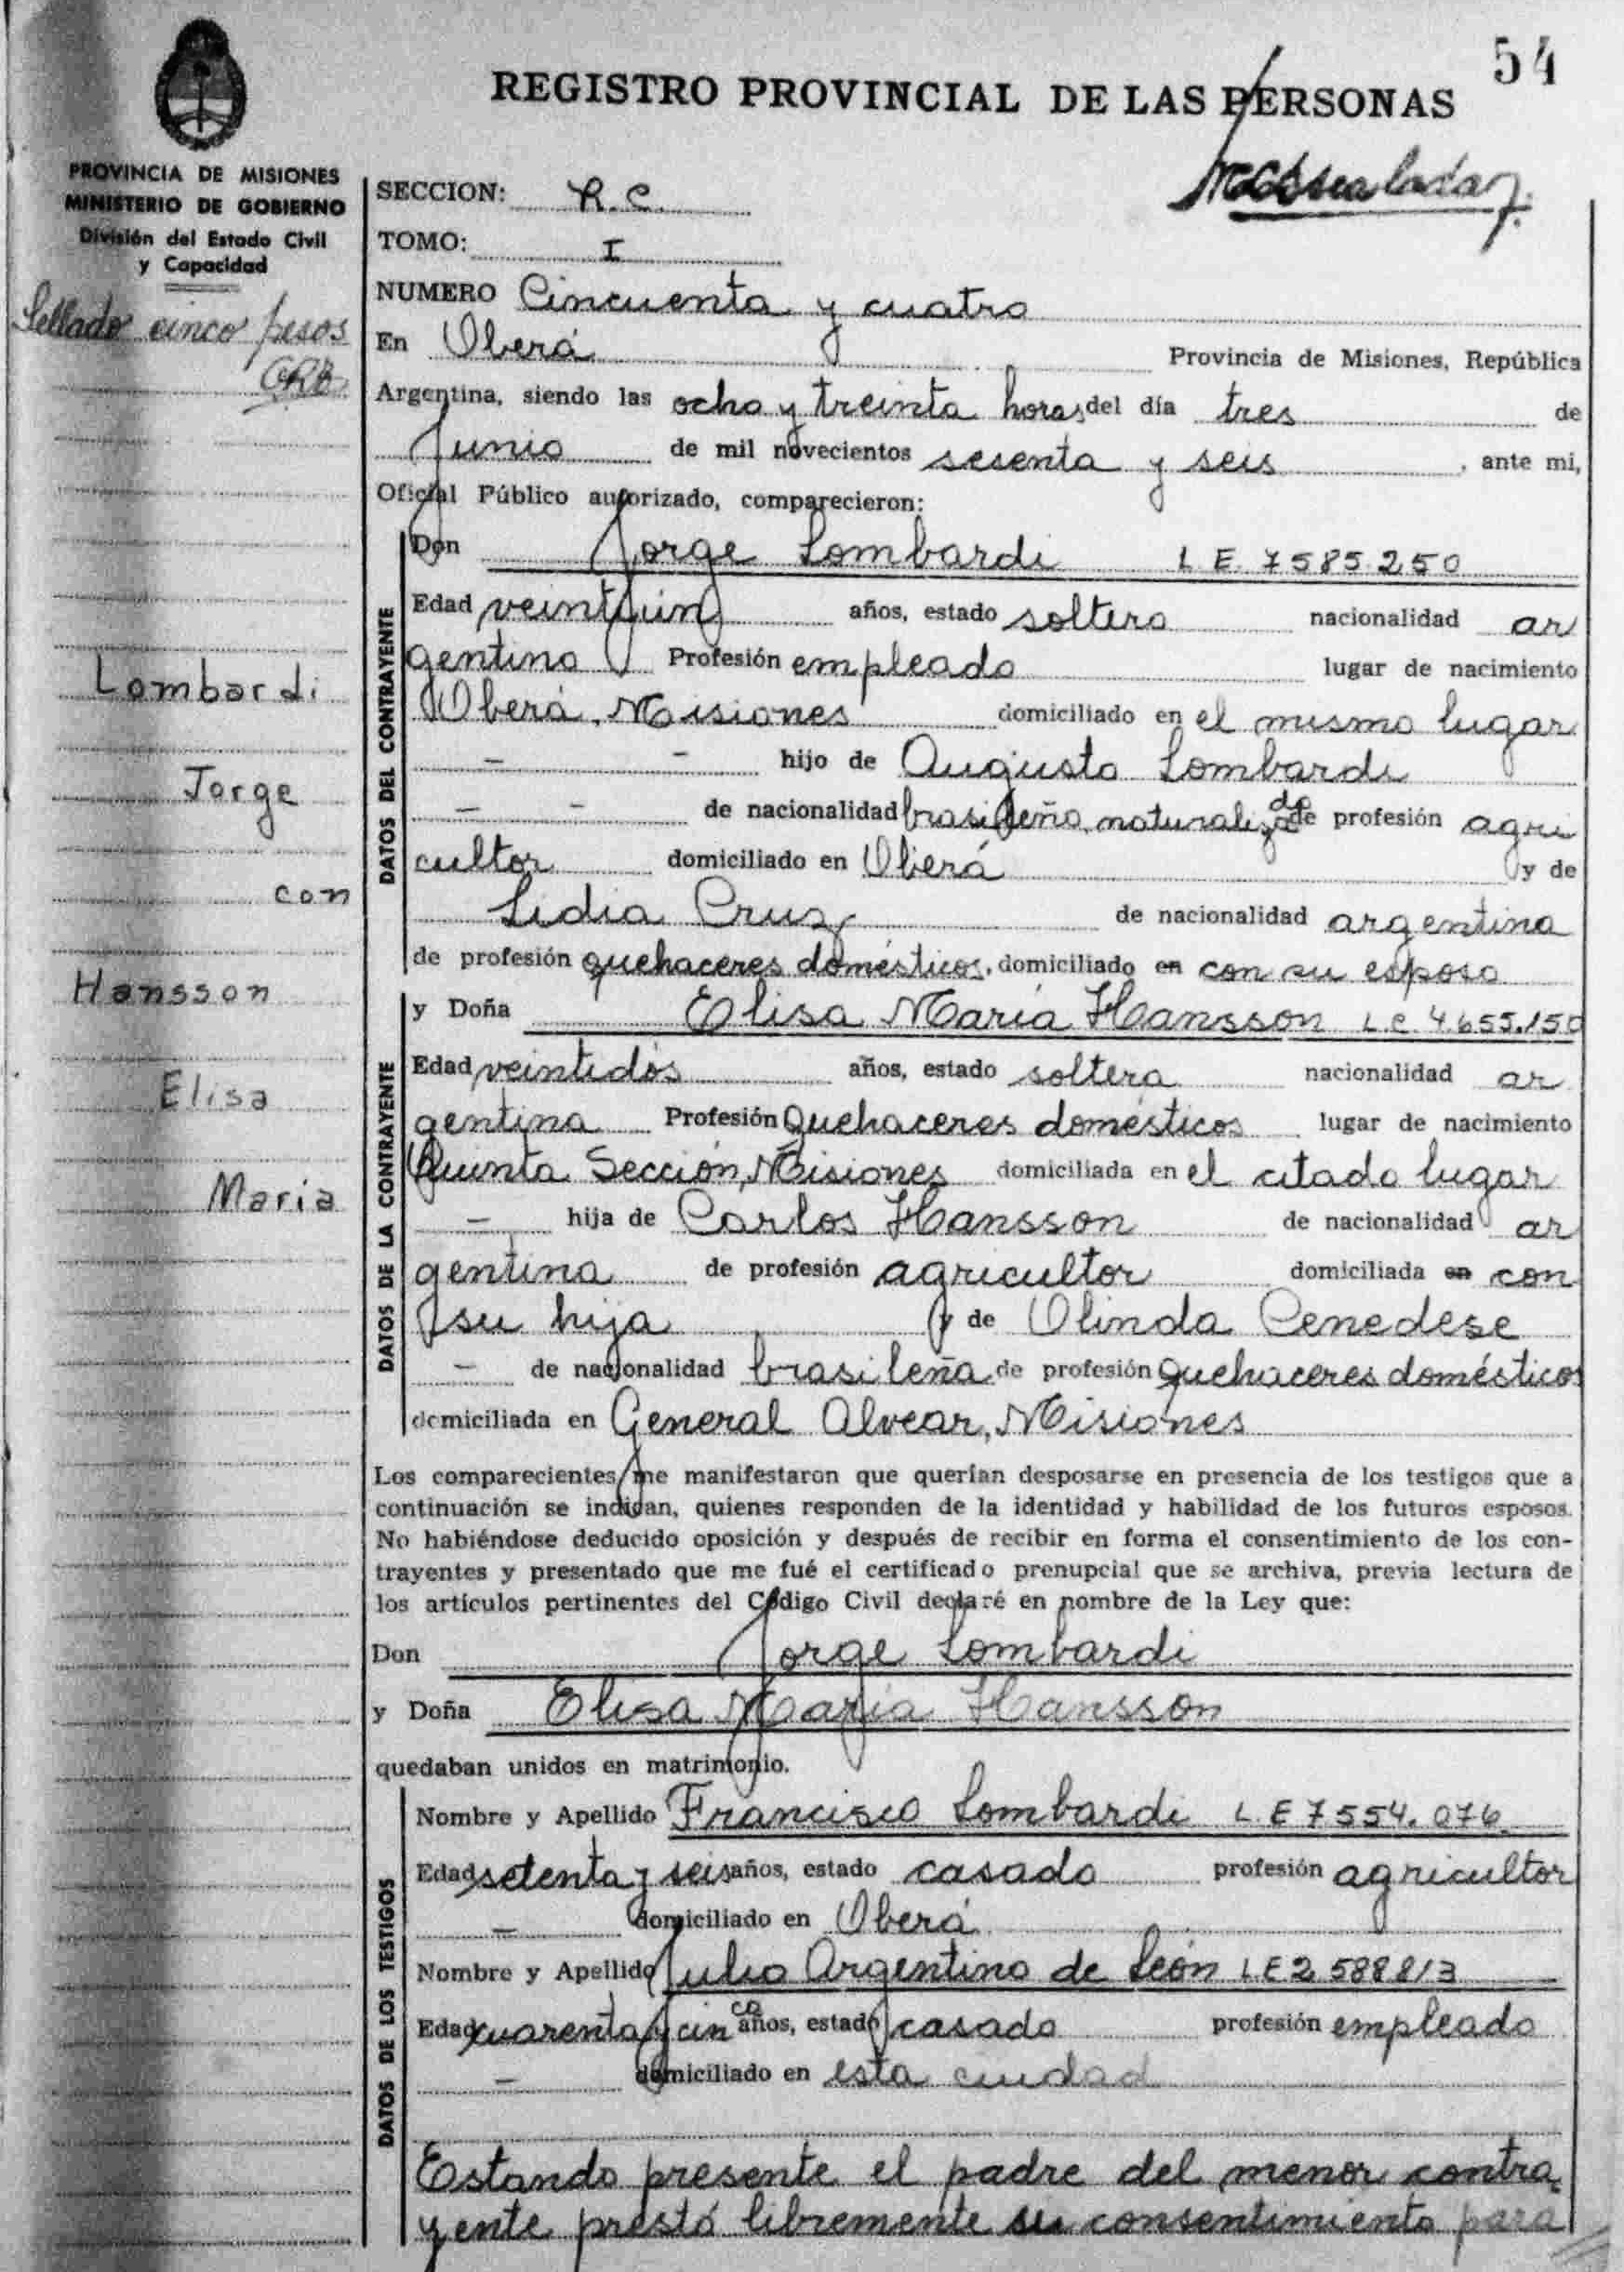 54
REGISTRO PROVINCIAL DE LAS PERSONAS
PROVINCIA DE MISIONES
MINISTERIO DE GOBIERNO
División del Estado Civil
y Capacidad
Sellado cinco pesos
Lombardi
Jorge
con
Hansson
Elisa
Maria
SECCION: R.C.
TOMO: I
NUMERO Cincuenta y cuatro
En Oberá Provincia de Misiones, República
Argentina, siendo las ocho y treinta horas del día tres de
Junio de mil novecientos sesenta y seis, ante mi,
Oficial Público autorizado, comparecieron:
DATOS DEL CONTRAYENTE
Don Jorge Lombardi L E. 7585.250
Edad veintiún años, estado soltero nacionalidad ar
gentino Profesión empleado lugar de nacimiento
Oberá, Misiones domiciliado en el mismo lugar
- - hijo de Augusto Lombardi
- - de nacionalidad brasileño naturalizado de profesión agri
cultor domiciliado en Oberá y de
Lidia Cruz de nacionalidad argentina
de profesión quehaceres domésticos, domiciliado en con su esposo
DATOS DE LA CONTRAYENTE
y Doña Elisa María Hansson L.C. 4.655.150
Edad veintidós años, estado soltera nacionalidad ar
gentina Profesión Quehaceres domésticos lugar de nacimiento
Quinta Sección, Misiones domiciliada en el citado lugar
- hija de Carlos Hansson de nacionalidad ar
gentina de profesión agricultor domiciliada en con
su hija y de Olinda Cenedese
- de nacionalidad brasileña de profesión quehaceres domésticos
domiciliada en General Alvear, Misiones
Los comparecientes me manifestaron que querían desposarse en presencia de los testigos que a
continuación se indican, quienes responden de la identidad y habilidad de los futuros esposos.
No habiéndose deducido oposición y después de recibir en forma el consentimiento de los con-
trayentes y presentado que me fué el certificado prenupcial que se archiva, previa lectura de
los artículos pertinentes del Código Civil declaré en nombre de la Ley que:
Don Jorge Lombardi
y Doña Elisa María Hansson
quedaban unidos en matrimonio.
DATOS DE LOS TESTIGOS
Nombre y Apellido Francisco Lombardi L.E 7554.076
Edad setenta y seis años, estado casado profesión agricultor
- domiciliado en Oberá
Nombre y Apellido Julio Argentino de León L E 2 588813
Edad cuarenta y cinco años, estado casado profesión empleado
- domiciliado en esta ciudad
Estando presente el padre del menor contra
yente prestó libremente su consentimiento para